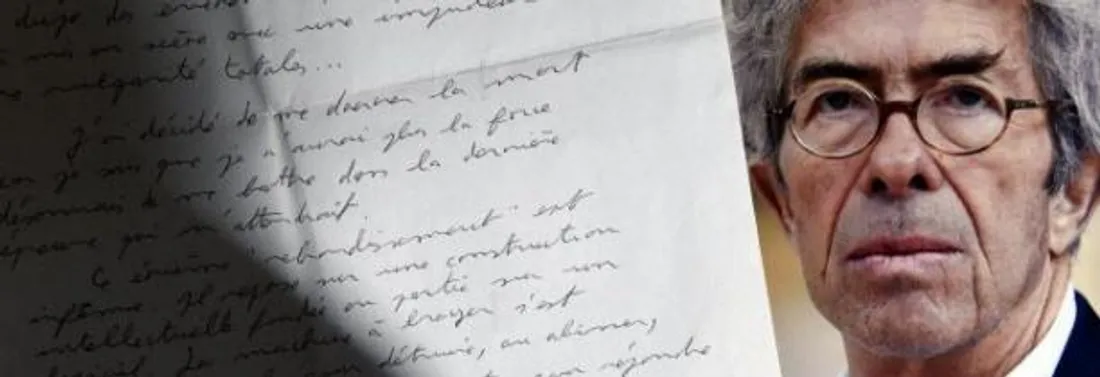 mis en scène avec une impudence
vulgarité totales...
J'ai décidé de me donner la mort
car je sais que je n'aurai plus la force
désormais de me battre dans la dernière
épreuve qui m'attendrait.
Ce énième "rebondissement" est
infâme. Il repose sur une construction
intellectuelle fondée en partie sur un
logiciel. La machine à broyer s'est
pour détruire, ou abîmer,
répondre